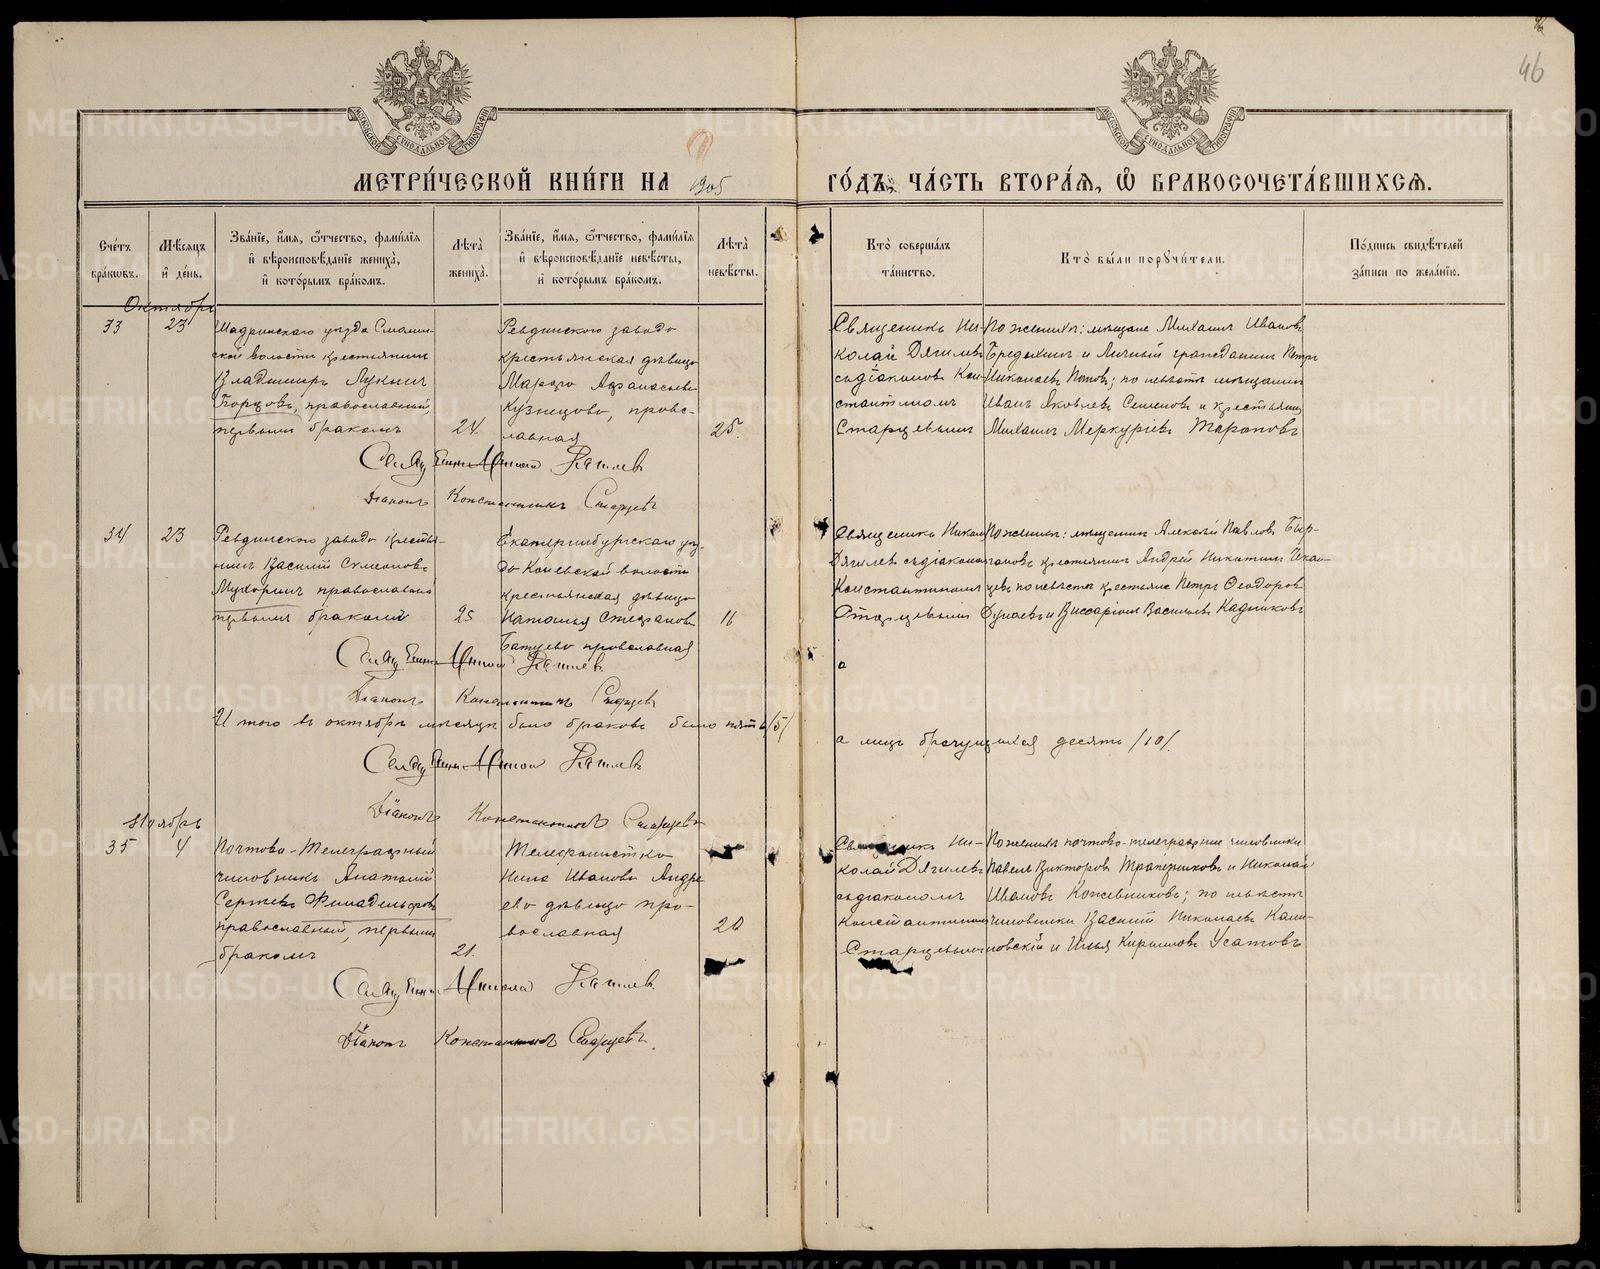 46
МЕТРИ́ЧЕСКОЙ КНИ́ГИ НА 1905 ГО́ДЪ, ЧА́СТЬ ВТОРА́Я, Ѽ БРАКОСОЧЕТА́ВШИХСЯ.
Сче́тъ бра́ковъ.
Мѣ́сяцъ и де́нь.
Зва́нїе, и́мя, ѻ́тчество, фами́лїя и вѣроисповѣ́данїе жениха̀, и кото́рымъ бра́комъ.
Лѣта̀ жениха̀.
Зва́нїе, и́мя, ѻ́тчество, фами́лїя и вѣроисповѣ́данїе невѣ́сты, и кото́рымъ бра́комъ.
Лѣта̀ невѣ́сты.
Кто̀ соверша́лъ та́инство.
Кто̀ бы́ли порꙋчи́тели.
По́дпись свидѣ́телей за́писи по жела́нїю.
Октябрь
33
23
Шадринскаго уѣзда Смолин-
ской волости крестьянинъ
Владимиръ Лукинъ
православный,
первымъ бракомъ
24.
Ревдинскаго завода
крестьянская дѣвица
Марфа Афанасьева
Кузнецова, право-
славная
25.
Священникъ Ни-
колай Дягилевъ
съ діакономъ Кон-
стантиномъ
Старцевымъ
По женихѣ: мѣщане Михаилъ Ивановъ
и Личный гражданинъ Петръ
Николаевъ Поповъ; по невѣстѣ мѣщанинъ
Иванъ Яковлевъ Семеновъ и крестьянинъ
Михаилъ Меркурьевъ
Священникъ Николай Дягилевъ
Діаконъ Константинъ Старцевъ
34
23
Ревдинскаго завода крестья-
нинъ Василій Симеоновъ
Мухоринъ православный
первымъ бракомъ
25
Екатеринбургскаго уѣз-
да Коневской волости
крестьянская дѣвица
Наталья Стефанова
православная
16
Священникъ Никол
Дягилевъ съ діакономъ
Константиномъ
Старцевымъ
По женихѣ: мѣщанинъ Алексѣй Павловъ
крестьянинъ Андрей Никитинъ
по невѣстѣ крестьяне Петръ Ѳеодоровъ
и Виссаріонъ Васильевъ Кадниковъ
Священникъ Николай Дягилевъ
Діаконъ Константинъ Старцевъ
Итого въ октябрѣ мѣсяцѣ было браковъ было пять /5/
а лицъ брачущихся десять /10/.
Священникъ Николай Дягилевъ
Діаконъ Константинъ Старцевъ
Ноябрь
35
4
Почтово-Телеграфный
чиновникъ Анатолій
Сергѣевъ Филадельфовъ
православный, первымъ
бракомъ
21.
Телефонистка
Нина Иванова Андре
ева дѣвица пра-
вославная
20
Священникъ Ни-
колай Дягилевъ
съ діакономъ
Константиномъ
Старцевымъ
По женихѣ почтово-телеграфные чиновники
Павелъ Викторовъ Трапезниковъ и Николай
Ивановъ Кожевниковъ; по невѣстѣ
чиновники Василій Николаевъ
и Илья Кирилловъ Усатовъ
Священникъ Николай Дягилевъ
Діаконъ Константинъ Старцевъ
METRIKI.GASO-URAL.RU